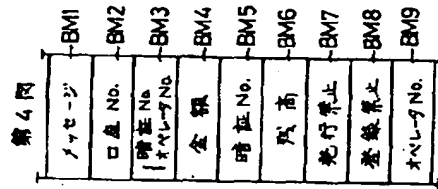 第4図
メッセージ BM1
口座 No. BM2
暗証No
オペレータNo. BM3
金額 BM4
暗証No. BM5
残高 BM6
発行禁止 BM7
登録禁止 BM8
オペレータNo. BM9